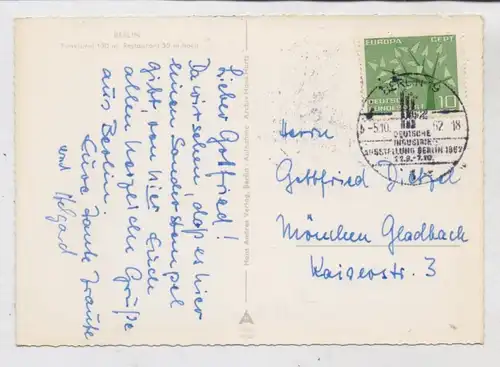 BERLIN
Funkturm 150 m, Restaurant 55 m hoch
Lieber Gottfried!
Da wir sehen, daß es hier
einen Sonderstempel
gibt, von hier Euch
allen herzliche Grüße
aus Berlin.
Eure Tante Traute
und
Hans Andres Verlag, Berlin
EUROPA CEPT
DEUTSCHE
BUNDESPOST
10
BERLIN 9
5.10. 62 18
DEUTSCHE
INDUSTRIE
AUSSTELLUNG BERLIN 1962
22.9.-7.10.
Herrn
Gottfried Dietzel
München Gladbach
Kaiserstr. 3